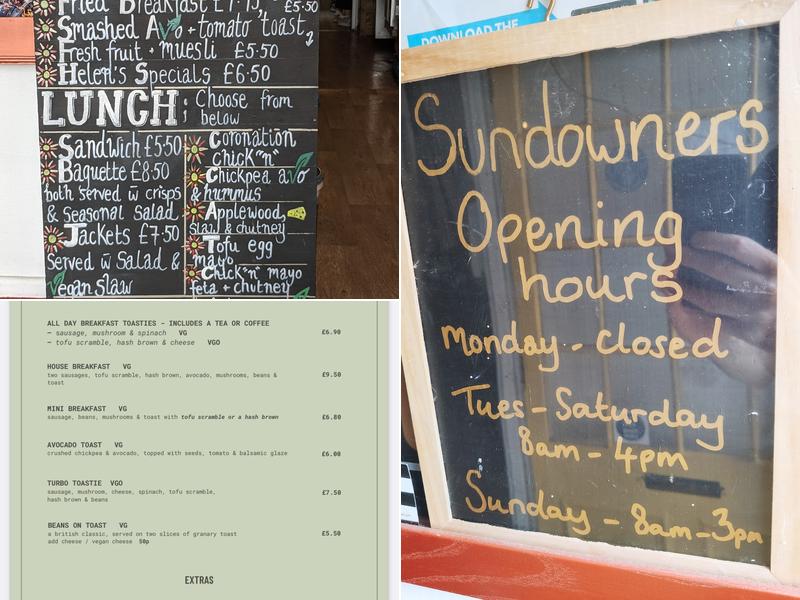 Fried Breakfast £7.75,
Smashed Avo + tomato toast
Fresh fruit + muesli £5.50
Helen's Specials £6.50
LUNCH; Choose from
below
Sandwich £5.50
Baquette £8.50
both served w̄ crisps
& Seasonal Salad
Jackets £7.50
Served w̄ Salad &
Vegan Slaw
Coronation
chick"n"
Chickpea avo
& hummus
Applewood,
slaw & chutney
Tofu egg
mayo
Chick"n" mayo
feta + chutney
ALL DAY BREAKFAST TOASTIES - INCLUDES A TEA OR COFFEE £6.90
— sausage, mushroom & spinach VG
— tofu scramble, hash brown & cheese VGO
HOUSE BREAKFAST VG
two sausages, tofu scramble, hash brown, avocado, mushrooms, beans & £9.50
toast
MINI BREAKFAST VG
sausage, beans, mushrooms & toast with tofu scramble or a hash brown £6.80
AVOCADO TOAST VG
crushed chickpea & avocado, topped with seeds, tomato & balsamic glaze £6.00
TURBO TOASTIE VGO
sausage, mushroom, cheese, spinach, tofu scramble, £7.50
hash brown & beans
BEANS ON TOAST VG
a british classic, served on two slices of granary toast £5.50
add cheese / vegan cheese 50p
EXTRAS
DOWNLOAD THE
Sundowners
Opening
hours
Monday - closed
Tues - Saturday
8am - 4pm
Sunday - 8am-3pm